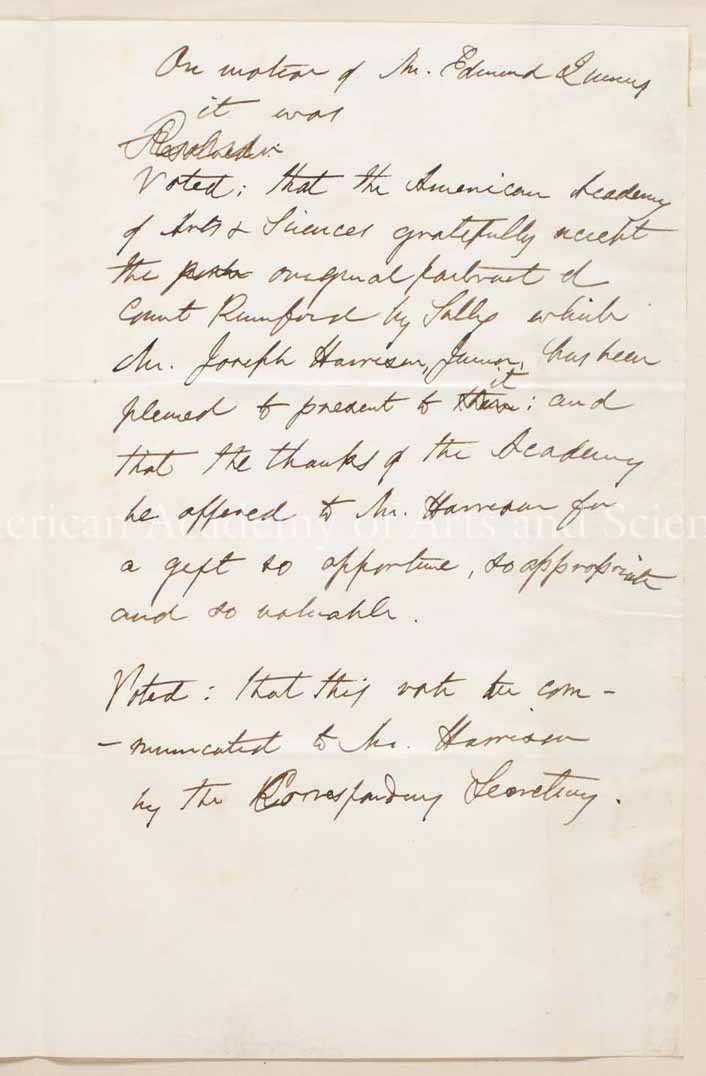 On motion of Mr. Edmund Quincy
it was
Resolved:
Voted: that the American Academy
of Arts & Sciences gratefully accept
the original portrait of
Count Rumford by Sully which
Mr. Joseph Harrison, Junior, has been
pleased to present to it: and
that the thanks of the Academy
be offered to Mr. Harrison for
American Academy of Arts and Scien
a gift so opportune, so appropriate
and so valuable.
Voted: that this vote be com-
-municated to Mr. Harrison
by the Corresponding Secretary.